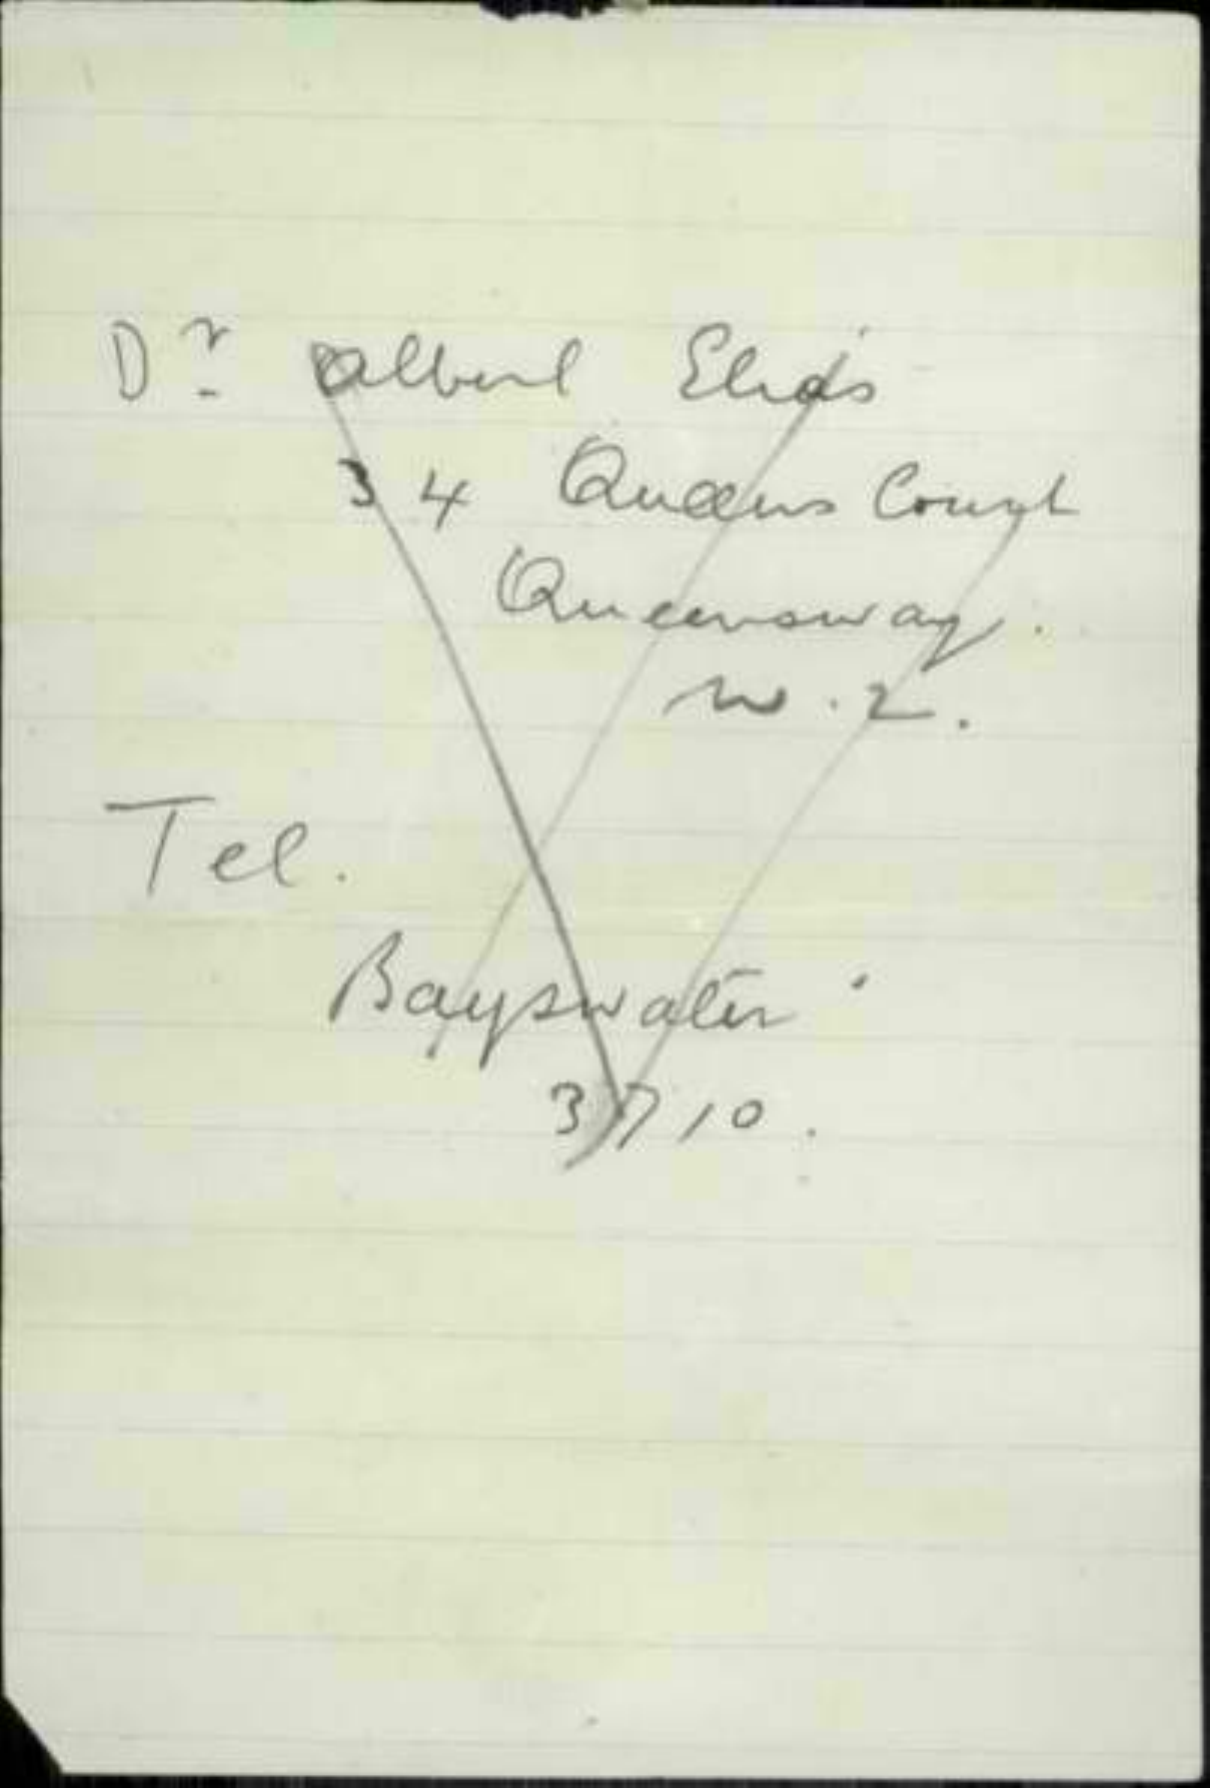 Dr Albert Elias
34 Queens Court
Queensway.
W.2.
Tel.
Bayswater
3710.